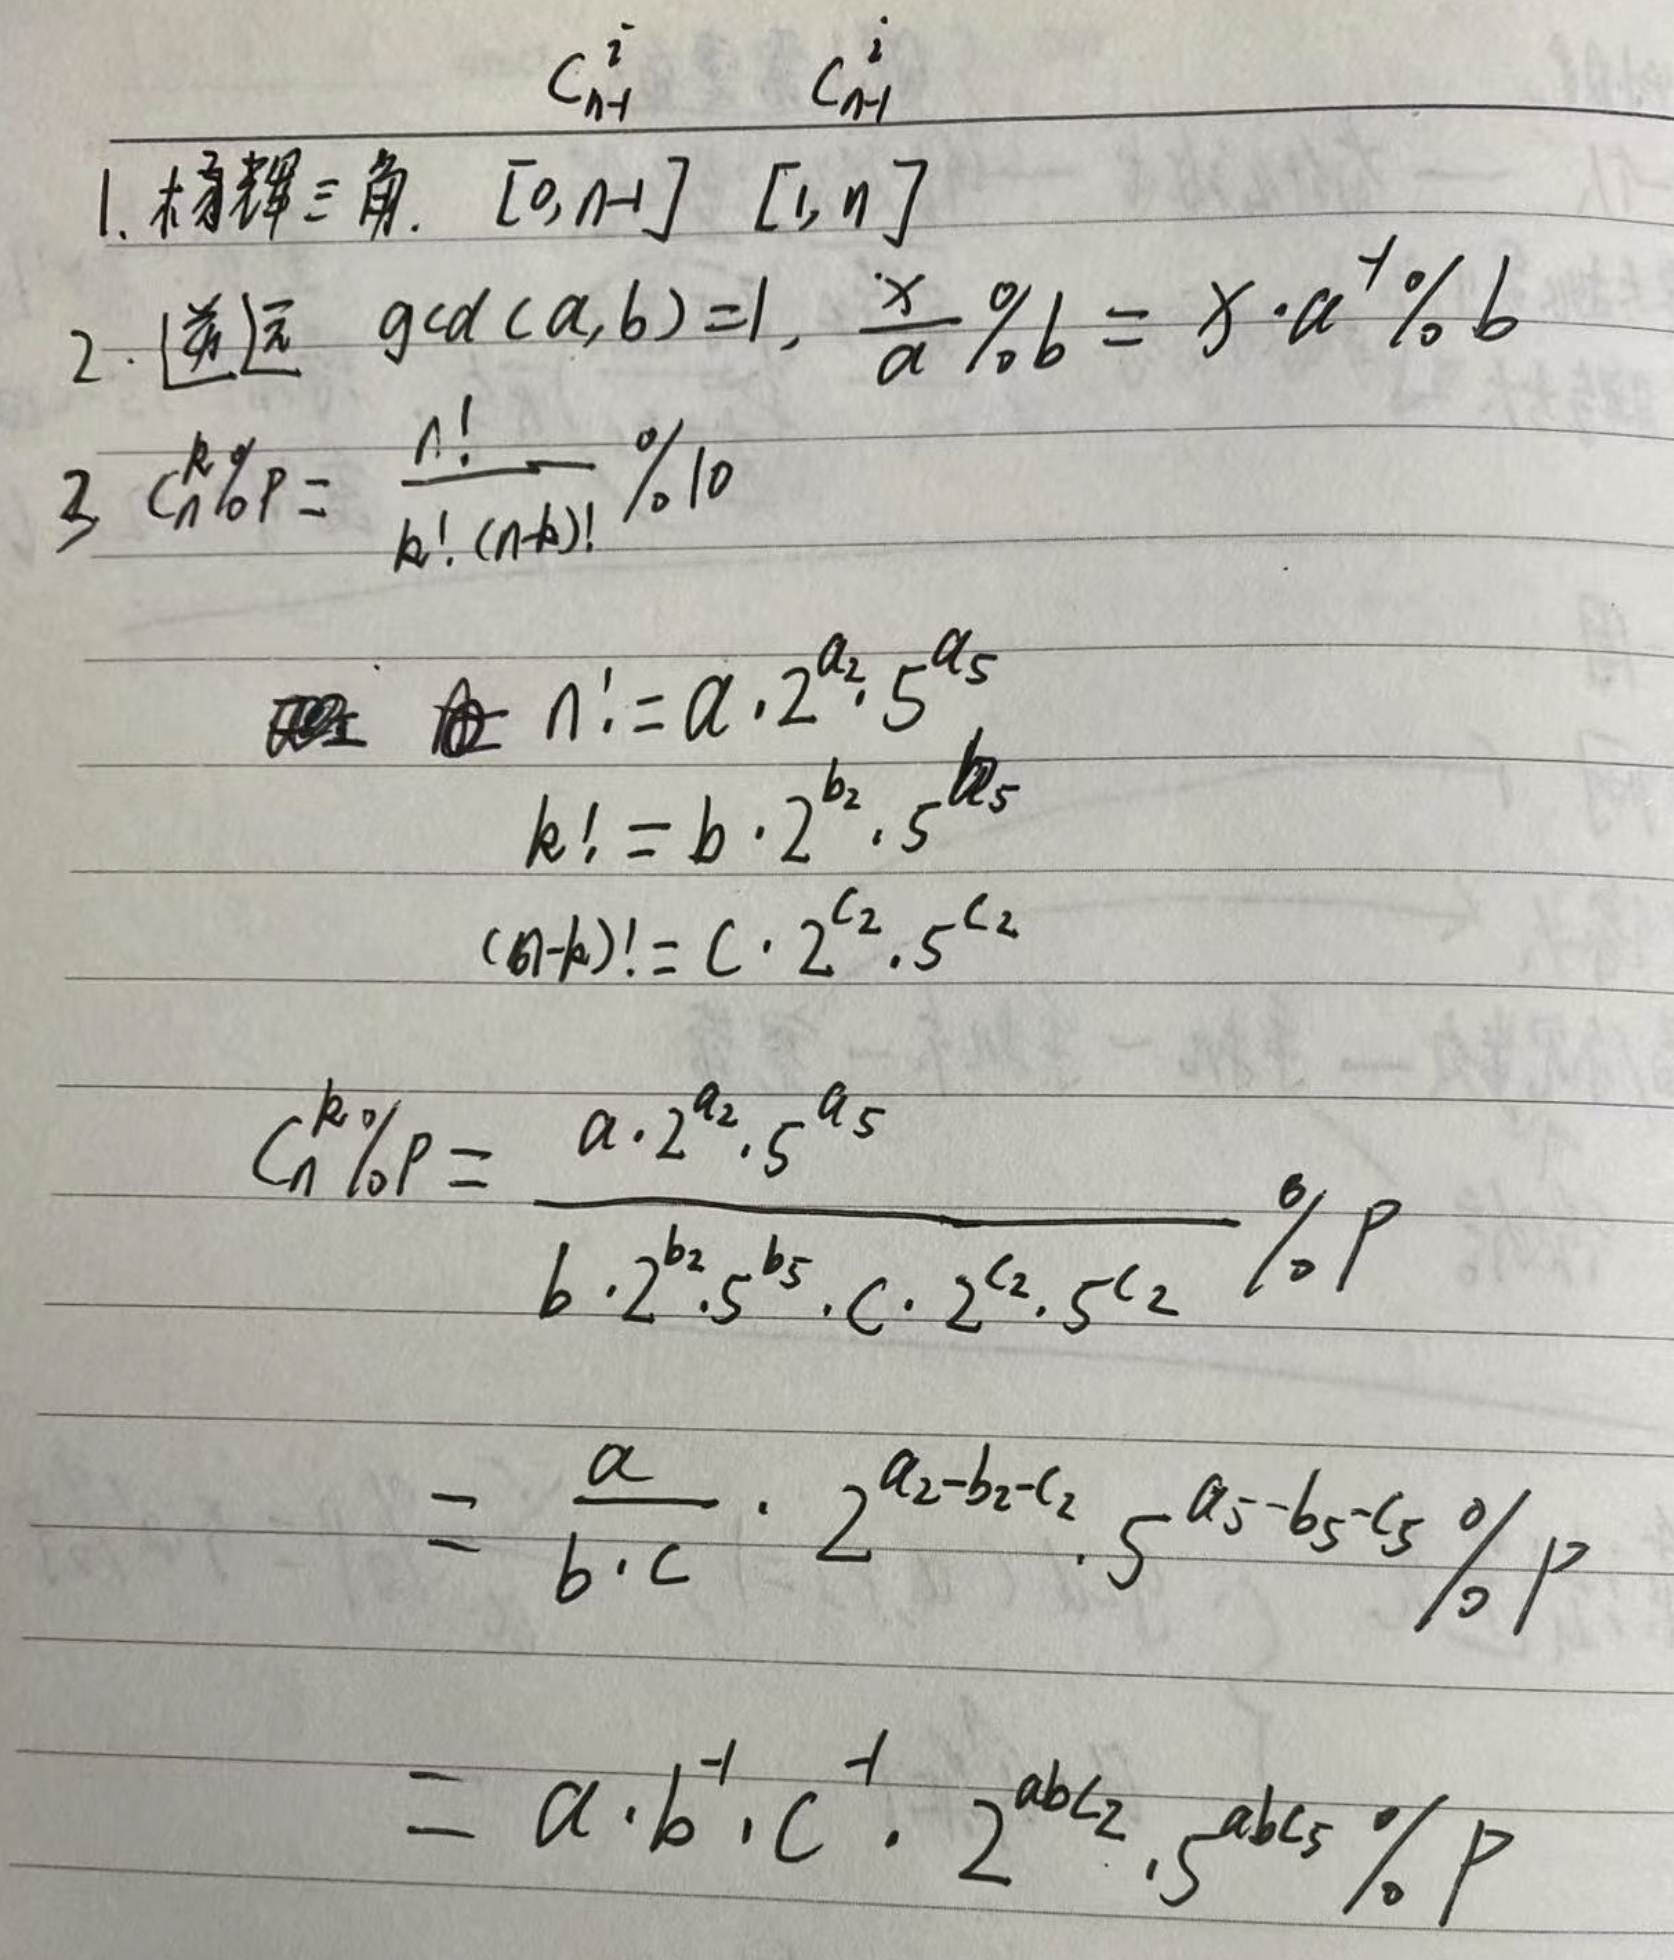 C_{n-1}^{i} C_{n-1}^{i}
1. 杨辉三角. [0, n-1] [1, n]
2. 逆元 gcd(a, b)=1, \frac{x}{a} % b = x·a^{-1} % b
3 C_n^k % P = \frac{n!}{k!·(n-k)!} % 10
n! = a·2^{a_2}·5^{a_5}
k! = b·2^{b_2}·5^{b_5}
(n-k)! = c·2^{c_2}·5^{c_2}
C_n^k % P = \frac{a·2^{a_2}·5^{a_5}}{b·2^{b_2}·5^{b_5}·c·2^{c_2}·5^{c_2}} % P
= \frac{a}{b·c}·2^{a_2-b_2-c_2}·5^{a_5-b_5-c_5} % P
= a·b^{-1}·c^{-1}·2^{abc_2}·5^{abc_5} % P